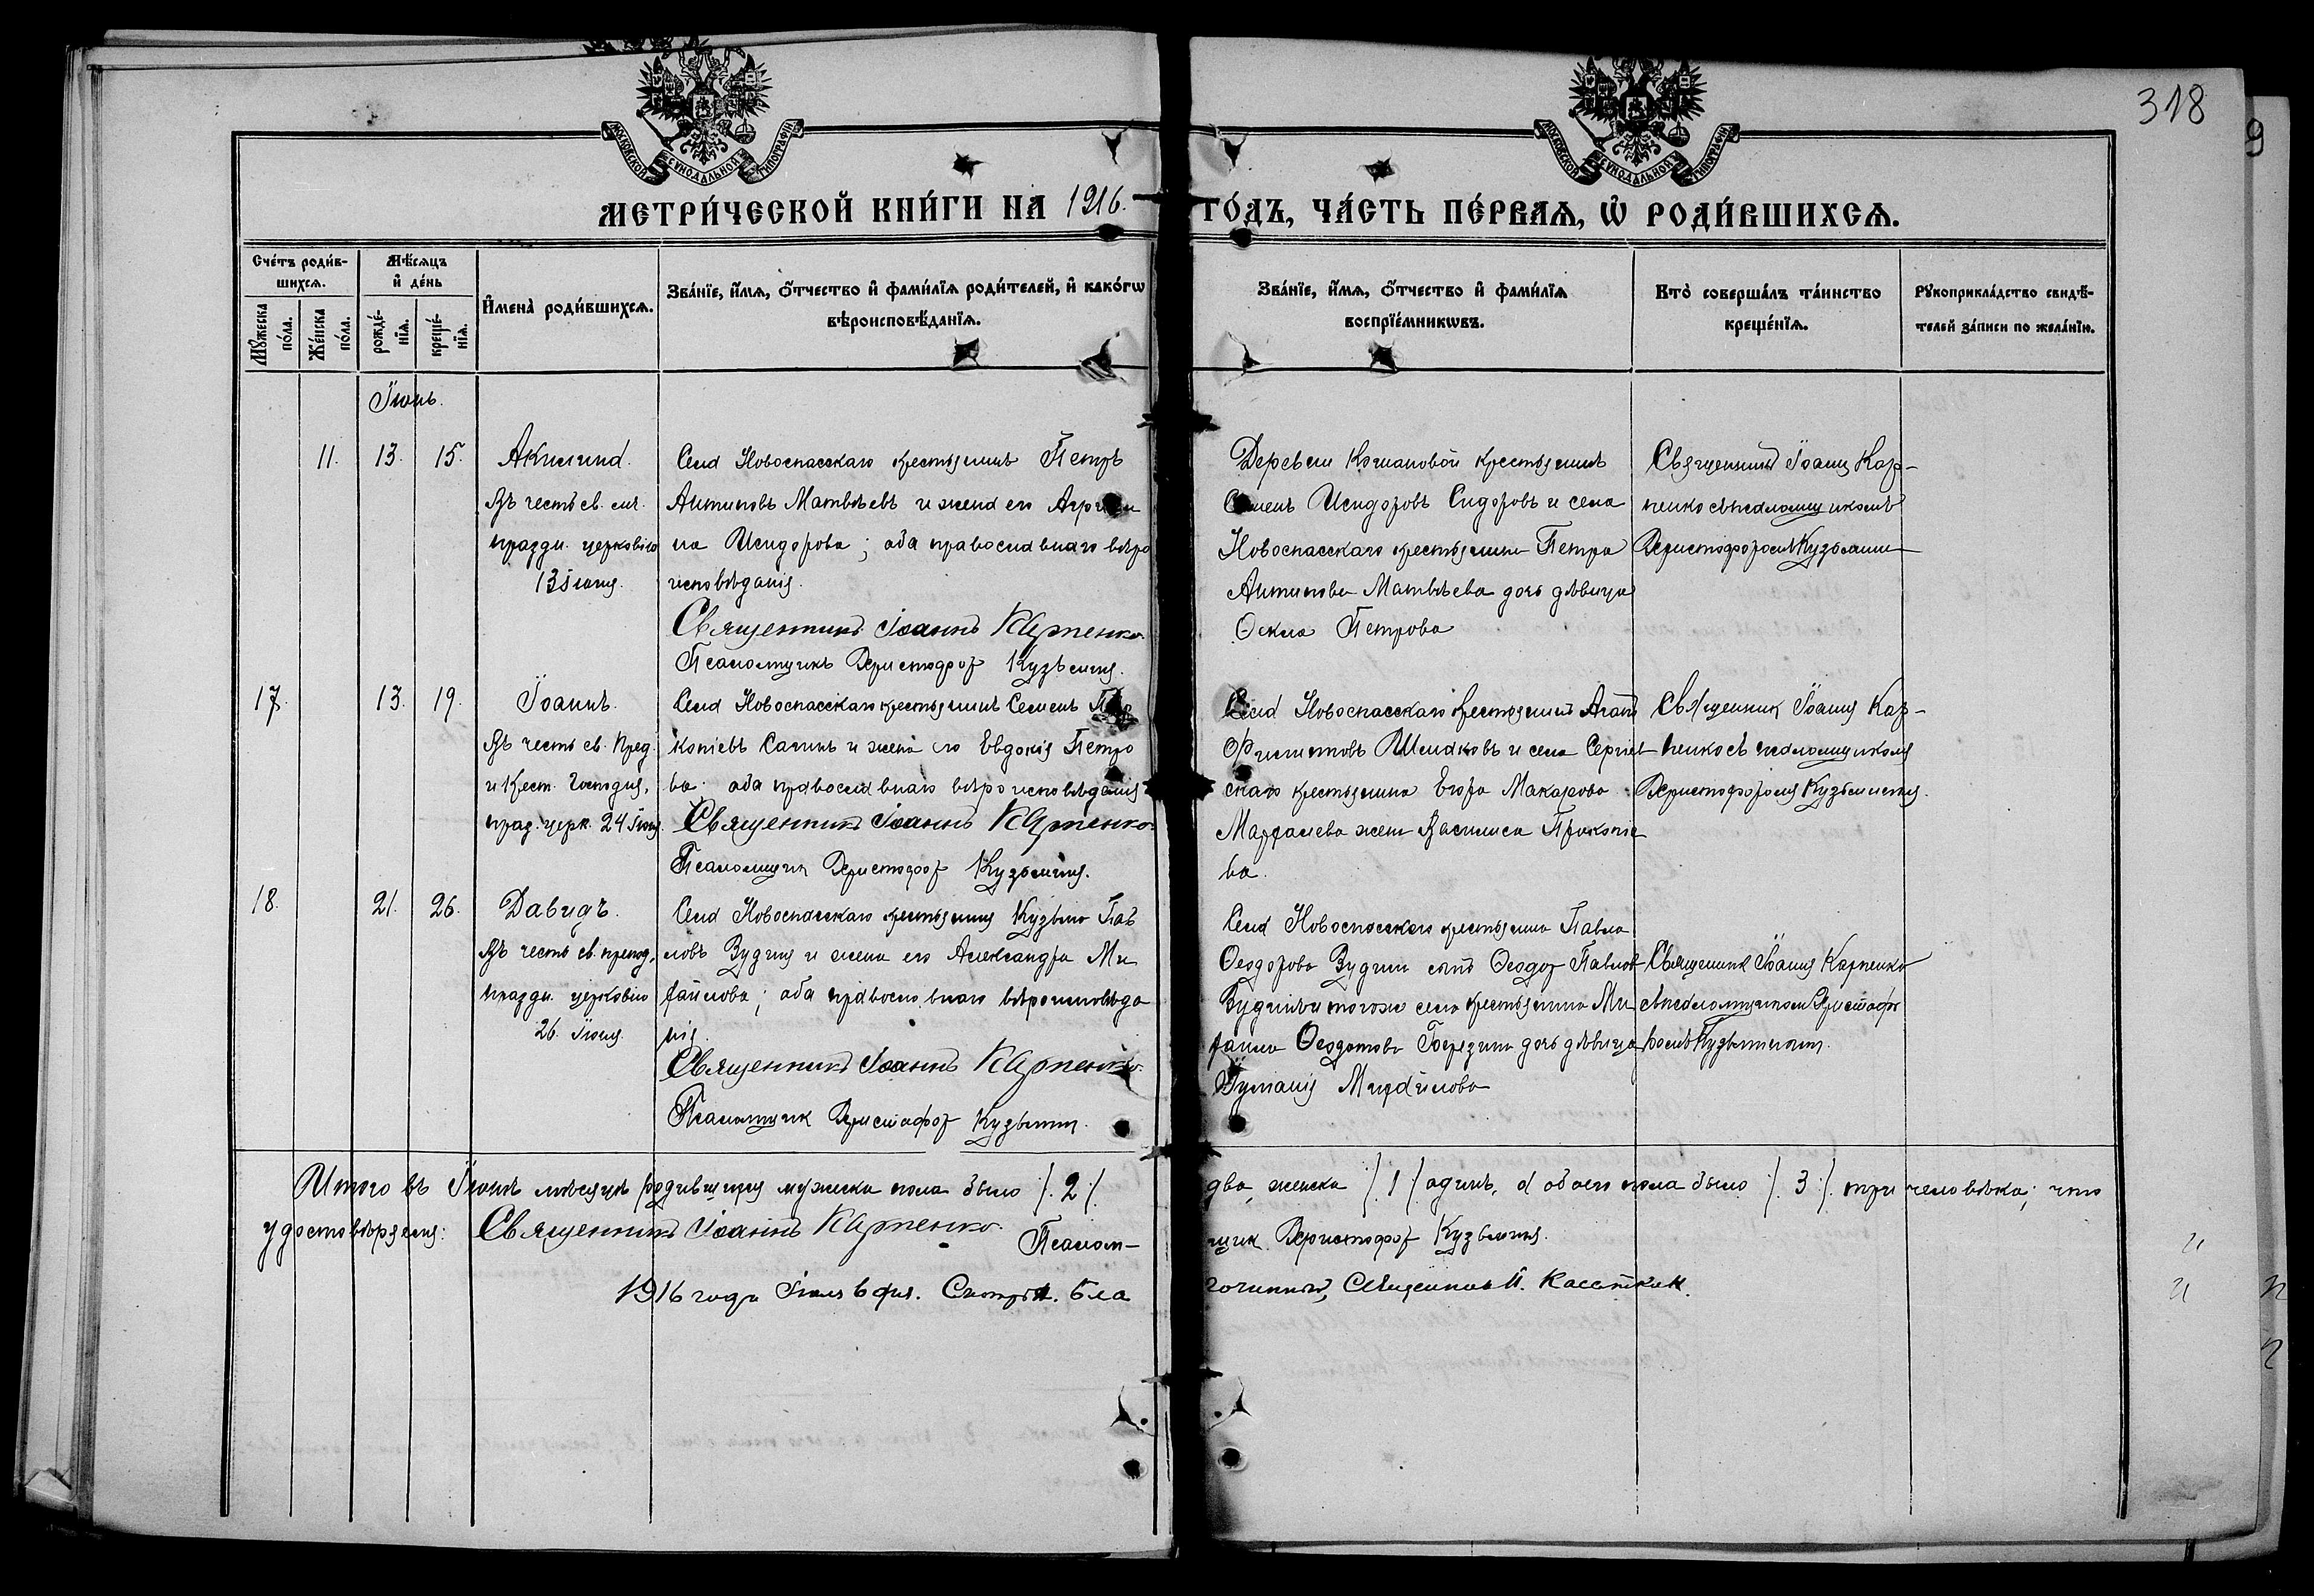 318
9
МОСКОВСКОЙ СѴНОДАЛЬНОЙ ТИПОГРАФІИ
МОСКОВСКОЙ СѴНОДАЛЬНОЙ ТИПОГРАФІИ
МЕТРИ́ЧЕСКОЙ КНИ́ГИ НА 1916.
ГО́ДЪ, ЧА́СТЬ ПЕ́РВАѦ, Ѡ҆ РОДИ́ВШИХСѦ.
Сче́тъ роди́в-
шихсѧ.
Мꙋ́жеска по́ла.
Же́нска по́ла.
Мѣ́сѧцъ и҆ де́нь
рожде́-нїѧ.
креще́-нїѧ.
И҆мена̀ роди́вшихсѧ.
Зва́нїе, и҆́мѧ, ѻ҆́тчество и҆ фами́лїѧ роди́телей, и҆ како́гѡ
вѣроисповѣ́данїѧ.
Зва́нїе, и҆́мѧ, ѻ҆́тчество и҆ фами́лїѧ
воспрїе́мникѡвъ.
Кто̀ соверша́лъ та́инство
креще́нїѧ.
Рꙋкоприкла́дство свидѣ́-
телей за́писи по жела́нїю.
Іюнь.
11. 13. 15. Акилина.
Въ честь св. мч.
праздн. церковію
13 Іюня.
Села Новоспасскаго крестьянинъ Петръ
Антиповъ Матвѣевъ и жена его Агриппи
на Исидорова; оба православнаго вѣро
исповѣданія.
Священникъ Іоаннъ Карпенко.
Псаломщикъ Христофор Кузьминъ.
Деревни Кошановой крестьянинъ
Семенъ Исидоровъ Сидоровъ и села
Новоспасскаго крестьянина Петра
Антипова Матвѣева дочь дѣвица
Ѳекла Петрова
Священникъ Іоаннъ Кар-
пенко съ псаломщикомъ
Христофоромъ Кузьминым
17. 13. 19. Іоаннъ.
Въ честь св. Пред.
и Крест. Господня,
празд. церк. 24 Іюня.
Села Новоспасскаго крестьянинъ Семенъ Про
копіевъ Сачинъ и жена его Евдокія Петро
ва; оба православнаго вѣроисповѣданія
Священникъ Іоаннъ Карпенко.
Псаломщик Христофор Кузьминъ.
Села Новоспасскаго крестьянинъ
и села Сергіев
скаго крестьянина Егора Макарова
жена Василиса Прокопіе
ва.
Священник Іоаннъ Кар-
пенко съ псаломщикомъ
Христофоромъ Кузьминымъ.
18. 21. 26. Давидъ.
Въ честь св. препод.
праздн. церковію
26. Іюня
Села Новоспасскаго крестьянинъ Кузьма Пав
ловъ Зудинъ и жена его Александра Ми
хайлова; оба православнаго вѣроисповѣда
нія.
Священникъ Іоаннъ Карпенко.
Псаломщик Христофор Кузьмин.
Села Новоспасскаго крестьянина Павла
Ѳеодорова Зудина сынъ Ѳеодор Павлов
Зудинъ и тогоже села крестьянина Ми
хаила Ѳеодотова Березина дочь дѣвица
Іуліанія Михайлова
Священник Іоаннъ Карпенко
съ псаломщиком Христофо
ромъ Кузьминымъ.
Итого въ Іюнѣ мѣсяцѣ родившихся мужска пола было /. 2 /.
два, женска /. 1 / одинъ, а обоего пола было /. 3 /. три человѣка; что
удостовѣряемъ: Священникъ Іоаннъ Карпенко. Псалом-
щик Христофор Кузьминъ.
1916 года Іюля 6 дня. Смотрѣл. Бла
гочинный, Священник І. Касаткин.